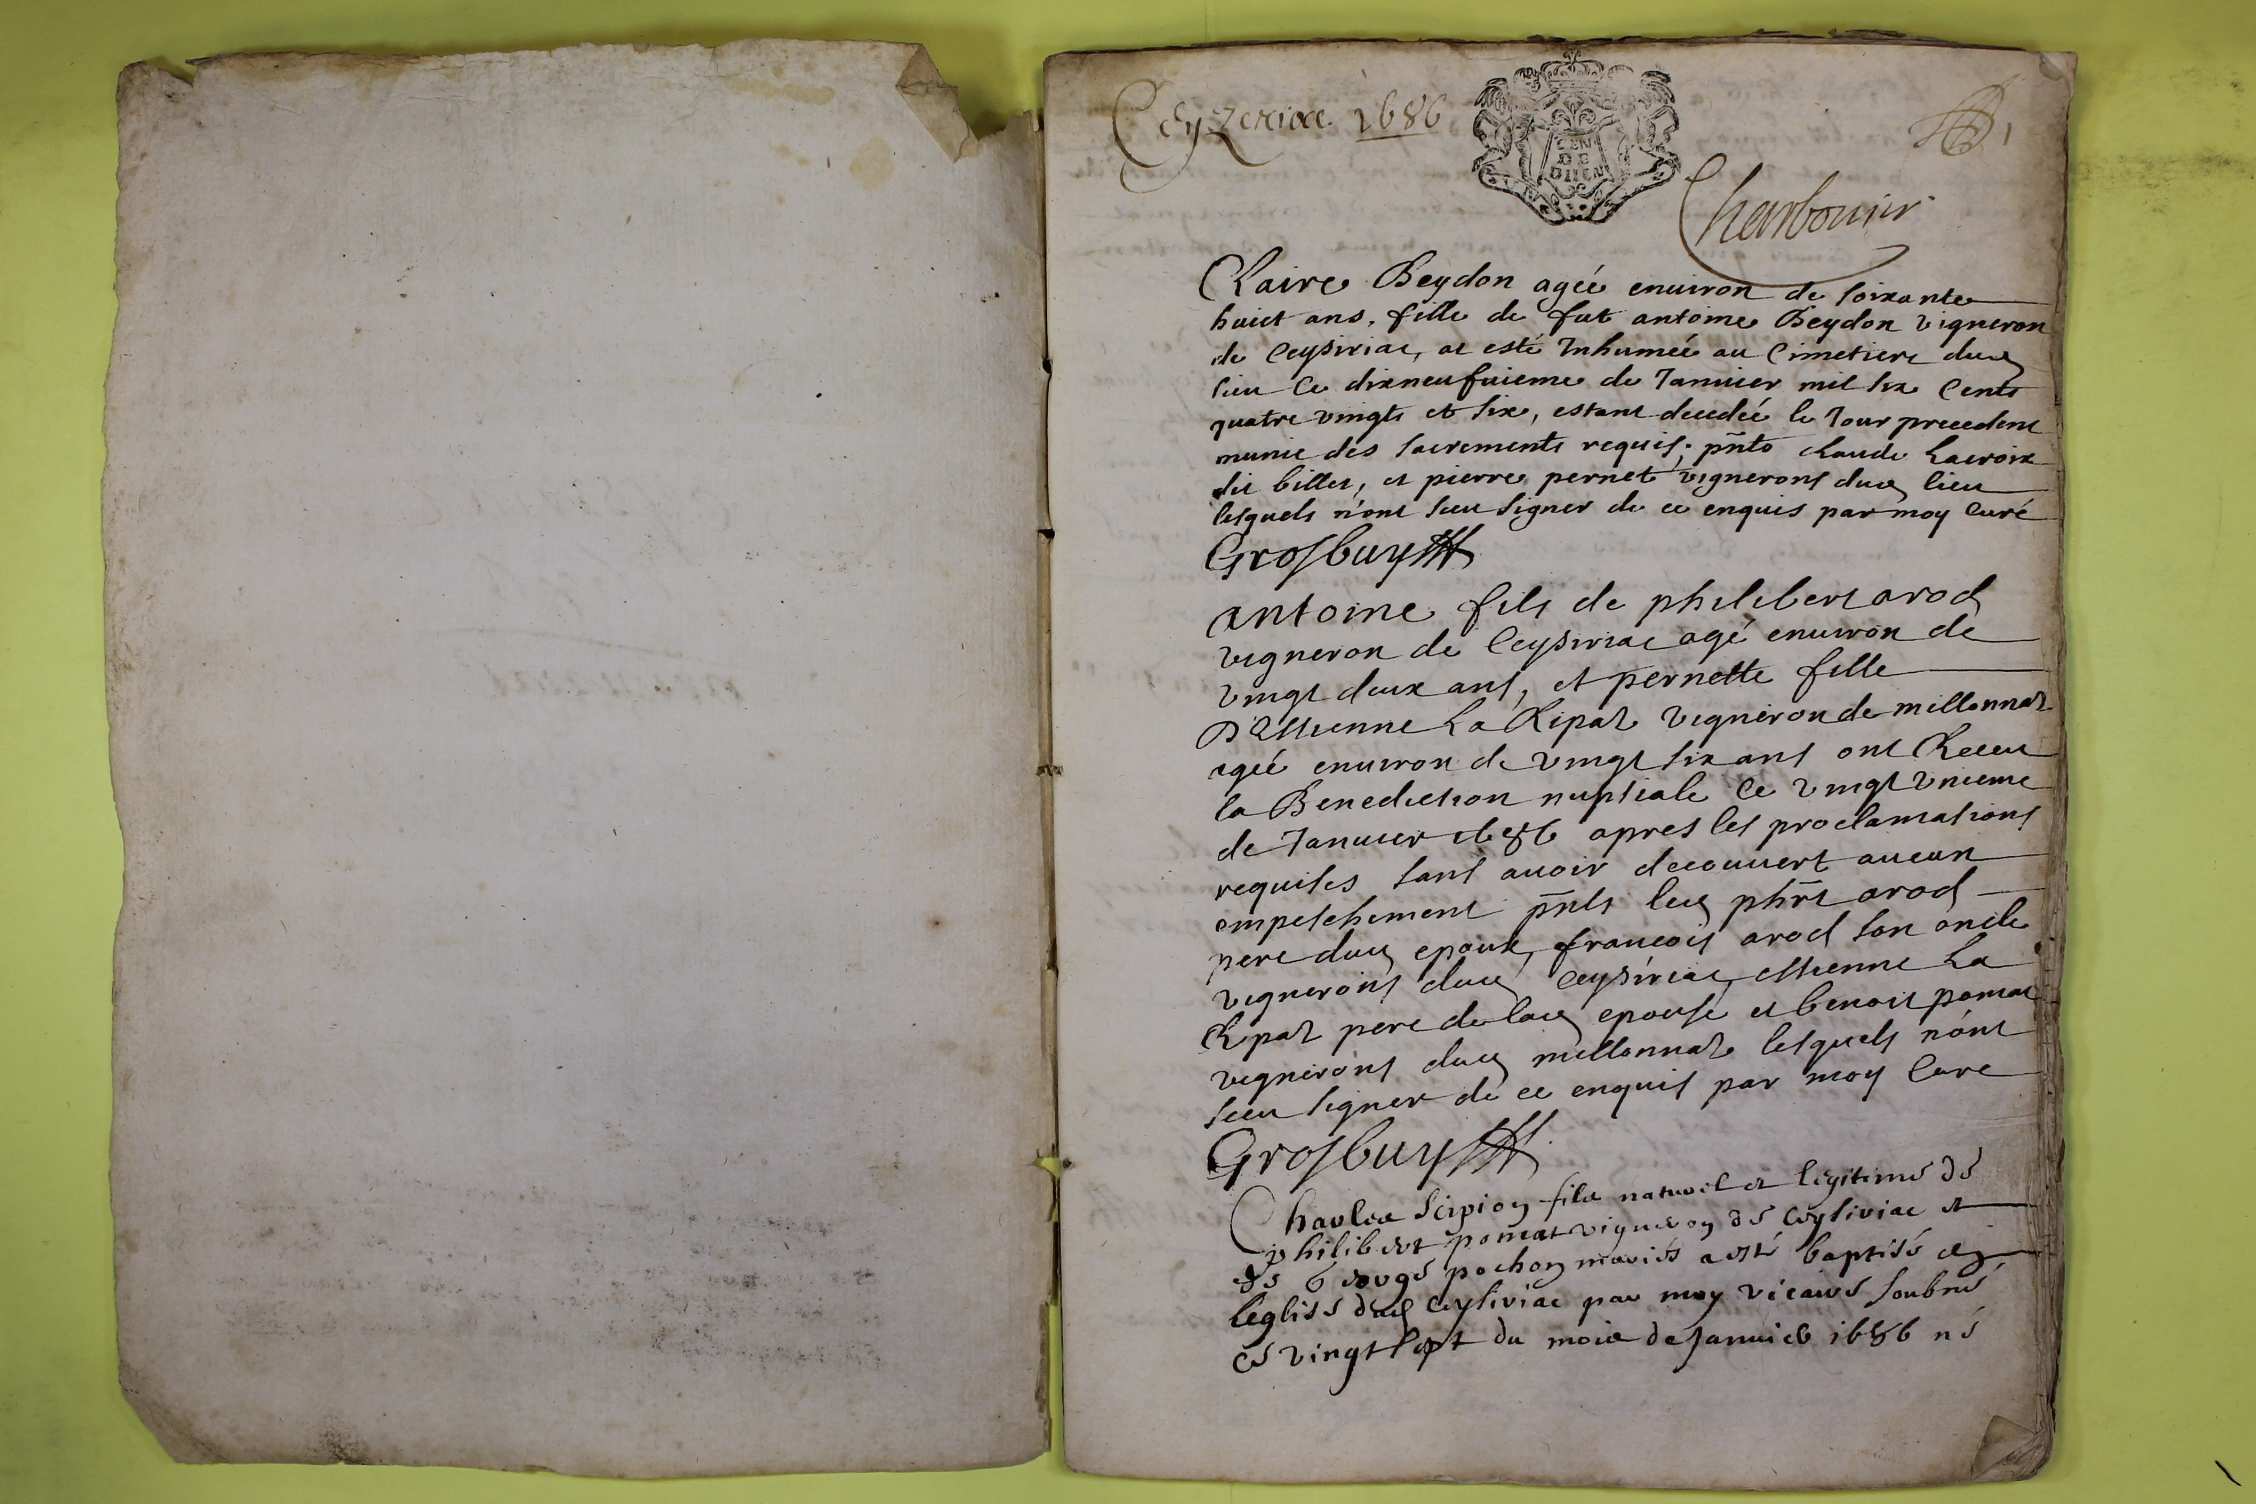 Ceyzeriac 1686
GEN
DE
DIION
1
Charbonier
Claire Beydon agée enuiron de soixante
huict ans, fille de fut antoine Beydon vigneron
de Ceysiriac, at esté Inhumée au Cimetiere dud
lieu Ce dixneufuieme de Januier mil six Cents
quatre vingts et six, estant decedée le Jour precedent
munie des sacrements requis; pñts Claude Lacroix
dit billet, et pierre pernet vignerons dud lieu
lesquels n'ont sceu signer de ce enquis par moy Curé
Grosbuy
antoine fils de philibert arod
vigneron de Ceysiriac agé enuiron de
vingt deux ans, et pernette fille
D'Estienne La Ripaz vigneron de millonnaz
agée enuiron de vingt six ans ont Receu
la Benediction nuptiale Ce vingt vnieme
de Januier 1686 apres les proclamations
requises sans auoir decouuert aucun
empeschement pñts led phrt arod
pere dud epoux, francois arod son oncle
vignerons dud Ceysiriac, estienne La
Ripaz pere de lad epouse et benoit pomat
vignerons dud millonnaz lesquels n'ont
sceu signer de ce enquis par moy Cure
Grosbuy
Charles Scipion fils naturel et legitime de
philibert pomat vigneron de Ceysiriac et
de george pochon mariés a esté baptisé en
l'eglise dud Ceysiriac par moy vicaire soubné
ce vingt sept du mois de Januier 1686 né